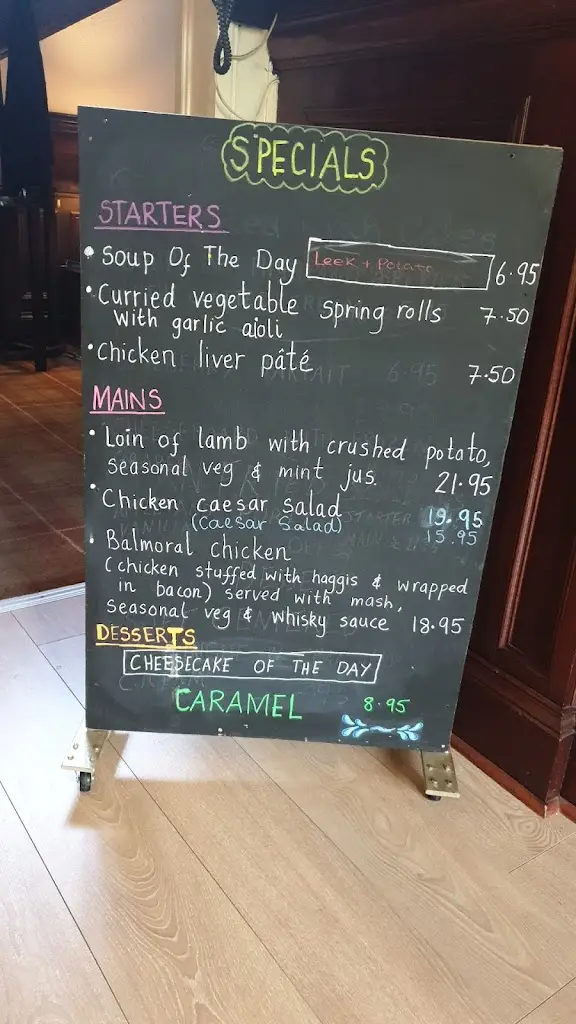 SPECIALS
STARTERS
• Soup Of The Day Leek + Potato 6.95
• Curried vegetable spring rolls 7.50
with garlic aioli
• Chicken liver pâté 7.50
MAINS
• Loin of lamb with crushed potato,
seasonal veg & mint jus. 21.95
• Chicken caesar salad 19.95
(Caesar Salad) 15.95
• Balmoral chicken
(chicken stuffed with haggis & wrapped
in bacon) served with mash,
seasonal veg & whisky sauce 18.95
DESSERTS
CHEESECAKE OF THE DAY
CARAMEL 8.95